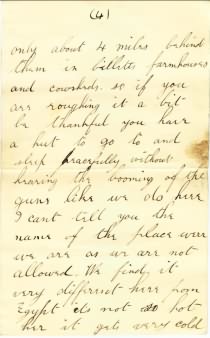 (4)
only about 4 miles behind
them in billits farmhouses
and cowsheds. so if you
are roughing it a bit
be thankful you have
a hut to go to and
sleep peacefully without
hearing the booming of the
guns like we do here
I cant tell you the
name of the place were
we are as we are not
allowed. We find it
very different here from
Egypt its not so hot
her it gets very cold